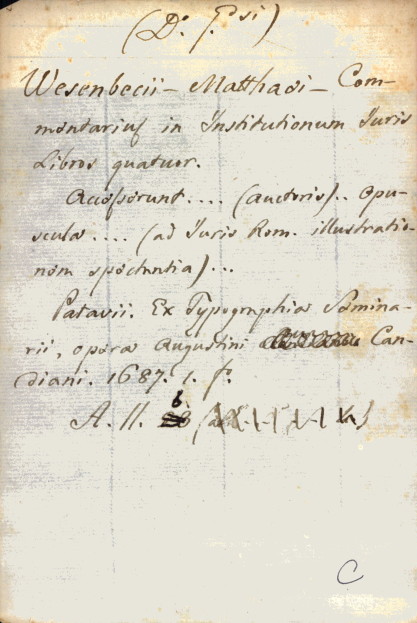 Wesenbecii - Matthaei - Com-
mentarius in Institutionum Iuris
Libros quatuor.
Accesserunt.... (auctoris).. Opu-
scula.... (ad Iuris Rom. illustratio-
nem spectantia)...
Patavii. Ex Typographia Semina-
rii, opera Augustini Can-
diani. 1687. 1. f.º
A. II. 6
C